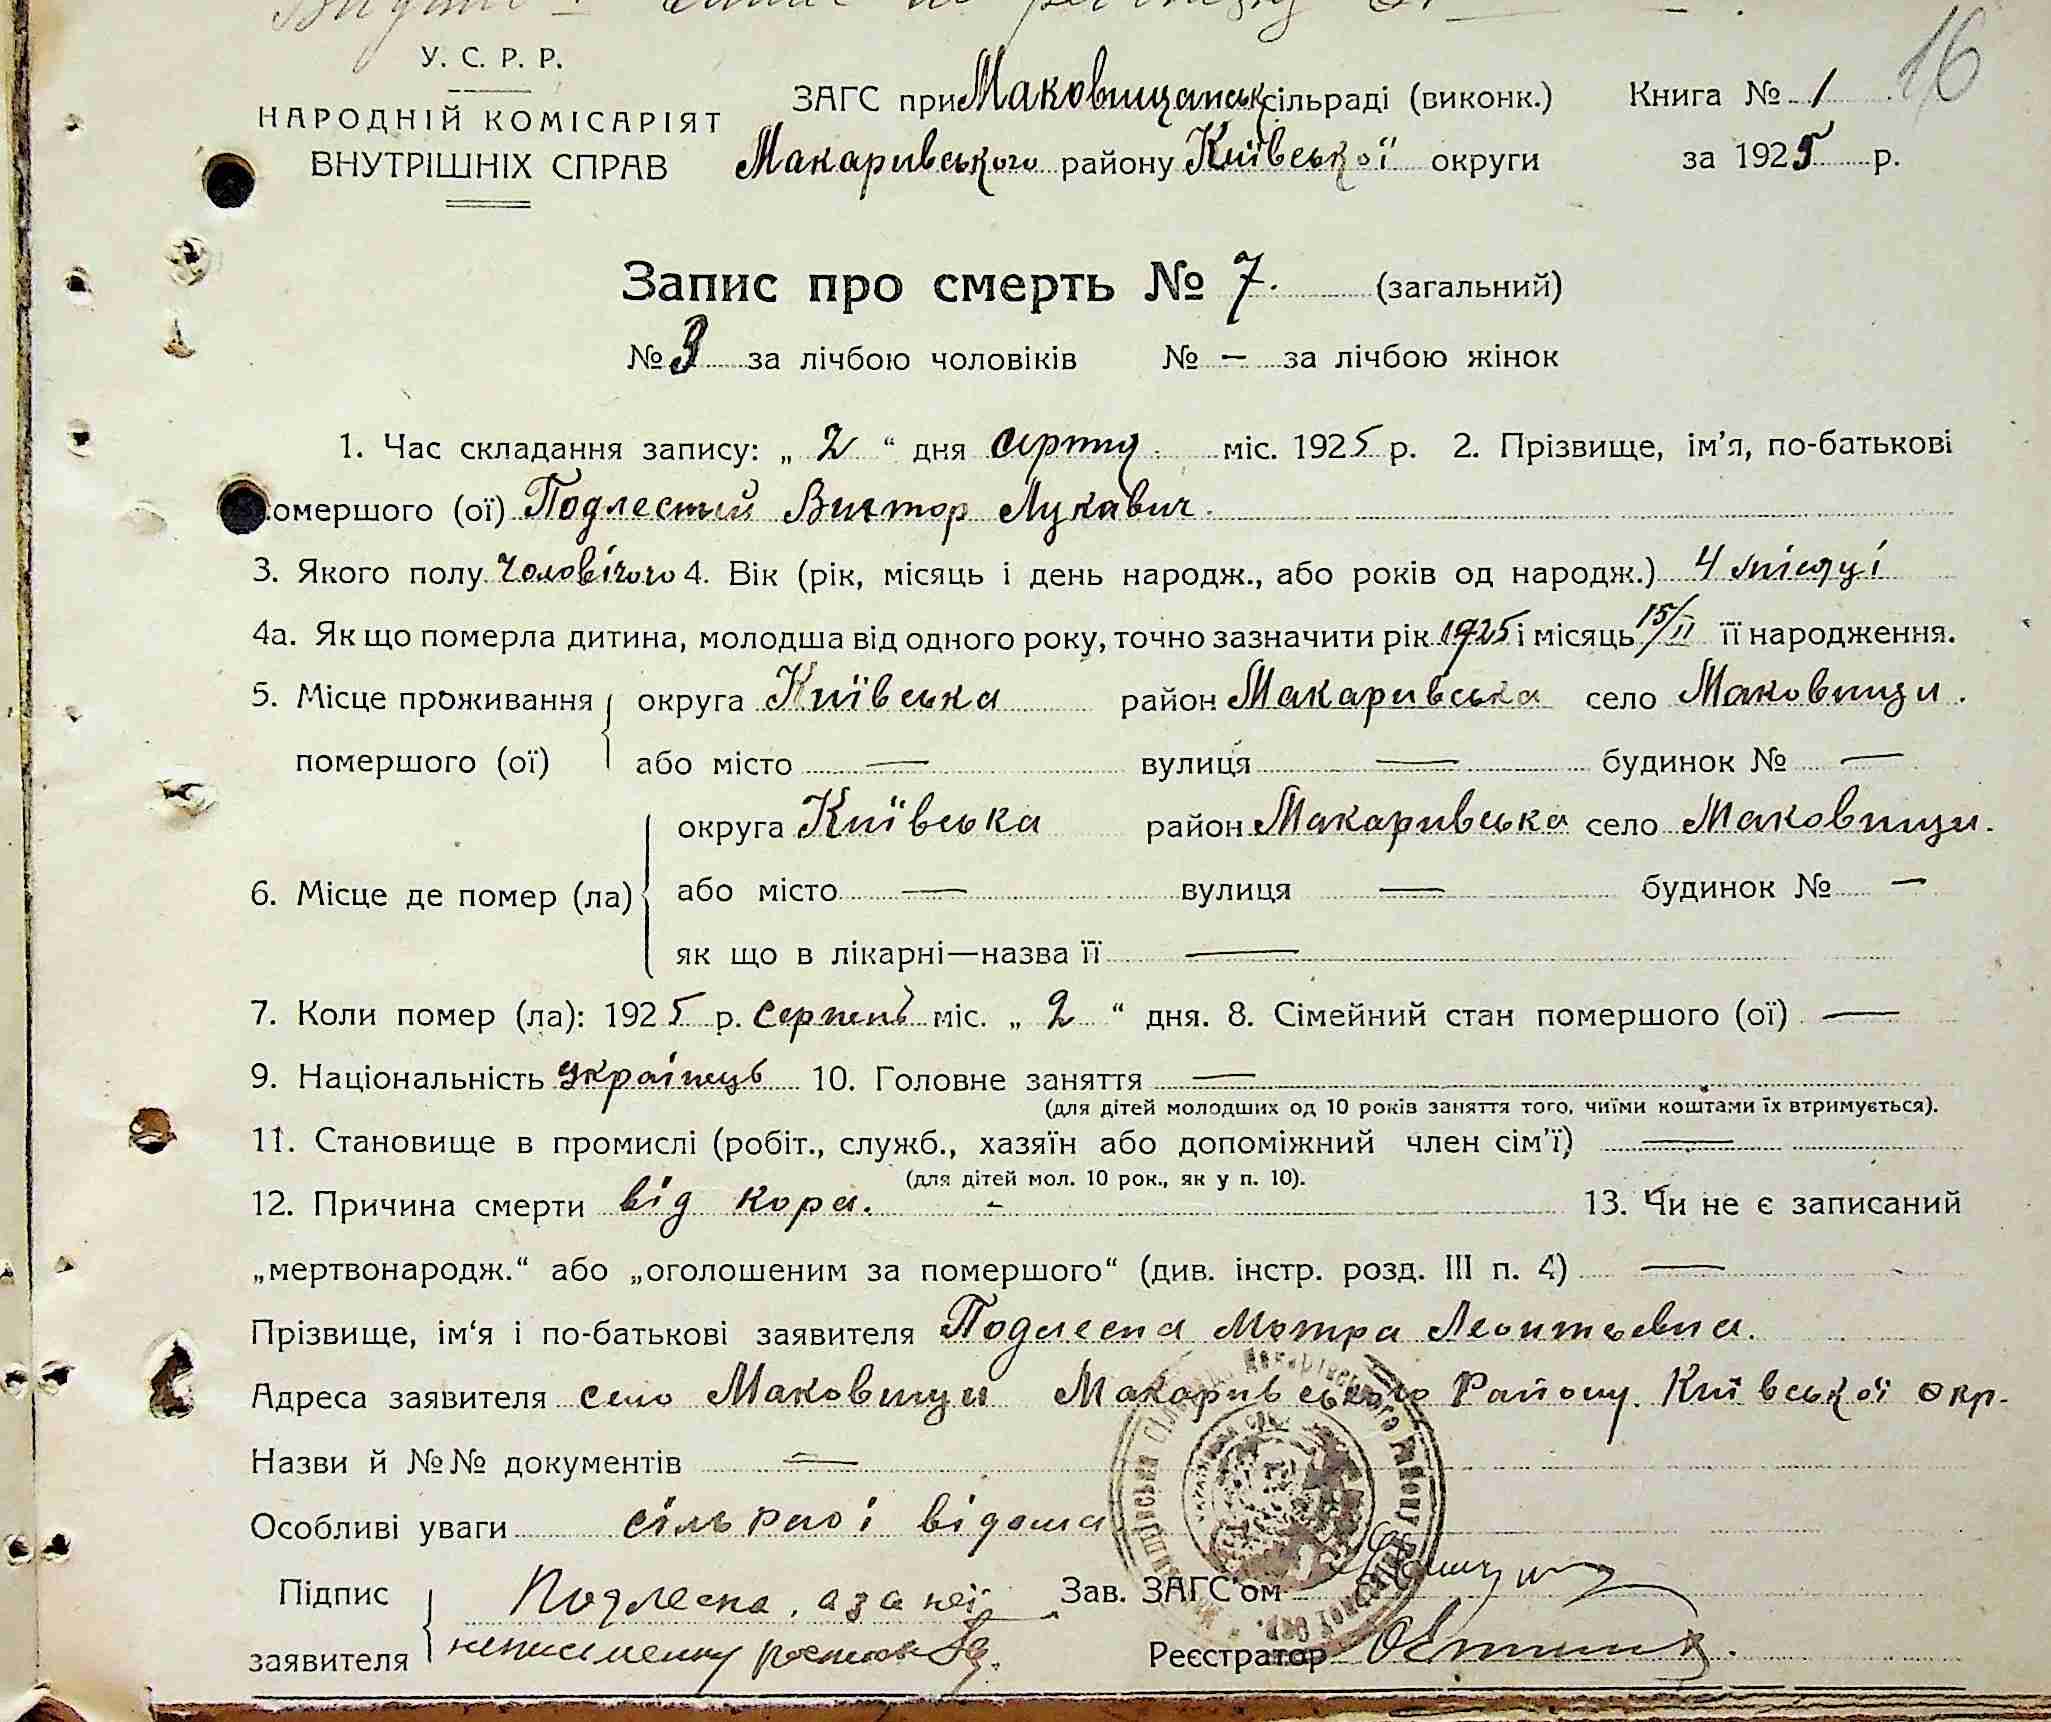 У. С. Р. Р.
НАРОДНІЙ КОМІСАРІЯТ
ВНУТРІШНІХ СПРАВ
ЗАГС при Маковищанськ сільраді (виконк.)
Макаривського району Київської округи
Книга № 1
за 1925 р.
16
Запис про смерть № 7. (загальний)
№ 3 за лічбою чоловіків № — за лічбою жінок
1. Час складання запису: „ 2 “ дня серпня міс. 1925 р. 2. Прізвище, ім’я, по-батькові
помершого (ої) Подлестий Виктор Лукавич.
3. Якого полу чоловічого 4. Вік (рік, місяць і день народж., або років од народж.) 4 місяці
4а. Як що померла дитина, молодша від одного року, точно зазначити рік 1925 і місяць 15/II її народження.
5. Місце проживання помершого (ої) округа Київська район Макаривська село Маковищи.
або місто — вулиця — будинок № —
6. Місце де помер (ла) округа Київська район Макаривська село Маковищи.
або місто — вулиця — будинок № —
як що в лікарні—назва її —
7. Коли помер (ла): 1925 р. серпень міс. „ 2 “ дня. 8. Сімейний стан помершого (ої) —
9. Національність українець 10. Головне заняття —
(для дітей молодших од 10 років заняття того, чиїми коштами їх втримується).
11. Становище в промислі (робіт., служб., хазяїн або допоміжний член сім’ї) —
(для дітей мол. 10 рок., як у п. 10).
12. Причина смерти від кора. - 13. Чи не є записаний
„мертвонародж.“ або „оголошеним за помершого“ (див. інстр. розд. III п. 4) —
Прізвище, ім‘я і по-батькові заявителя Подлесна Мотра Леонтьевна.
Адреса заявителя село Маковищи Макаривського Району. Київської окр.
Назви й №№ документів —
Особливі уваги сільраді відома
Підпис заявителя Подлесна, а за неї
неписьменну
Зав. ЗАГС‘ом
Реєстратор